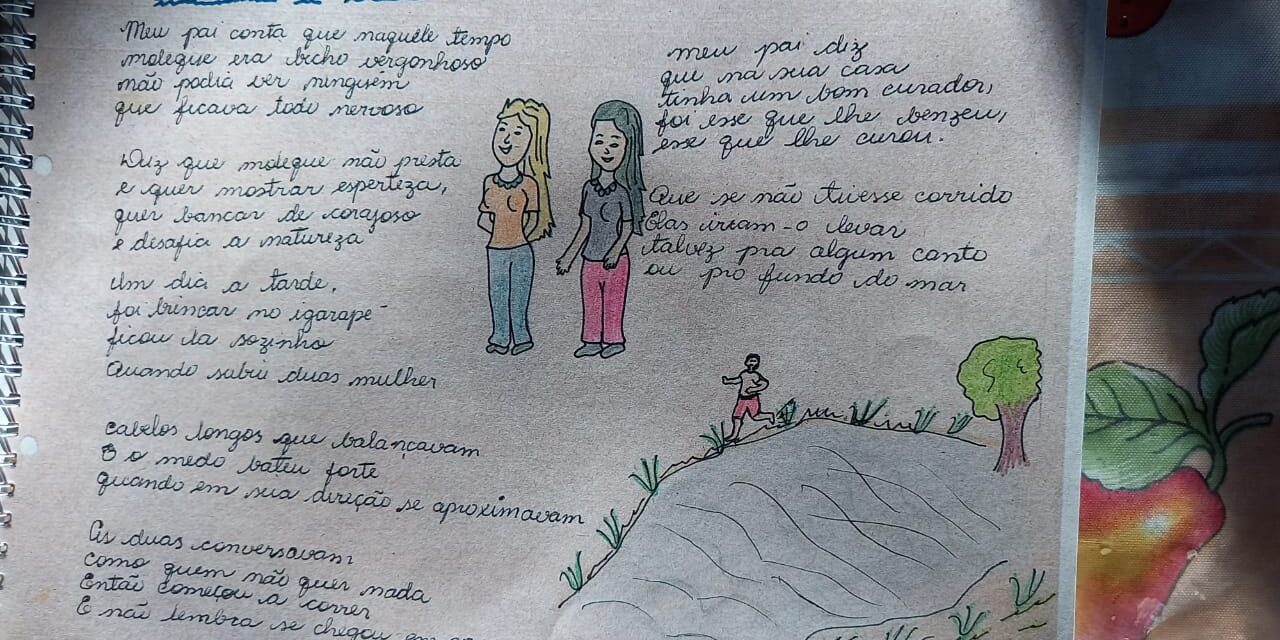 Meu pai conta que naquele tempo
molegue era bicho vergonhoso
não podia ver ninguém
que ficava todo nervoso
Diz que molegue não presta
e quer mostrar esperteza,
quer bancar de corajoso
e desafia a natureza
Um dia a tarde,
foi brincar no igarapé
ficou la sozinho
Quando subiu duas mulher
cabelos longos que balançavam
E o medo bateu forte
quando em sua direção se aproximavam
As duas conversavam
como quem não quer nada
Então começou a correr
E não lembra se chegou em
meu pai diz
que na sua casa
tinha um bom curador,
foi esse que lhe benzeu,
esse que lhe curou.
Que se não tivesse corrido
Elas iriam-o levar
talvez pra algum canto
ou pro fundo do mar